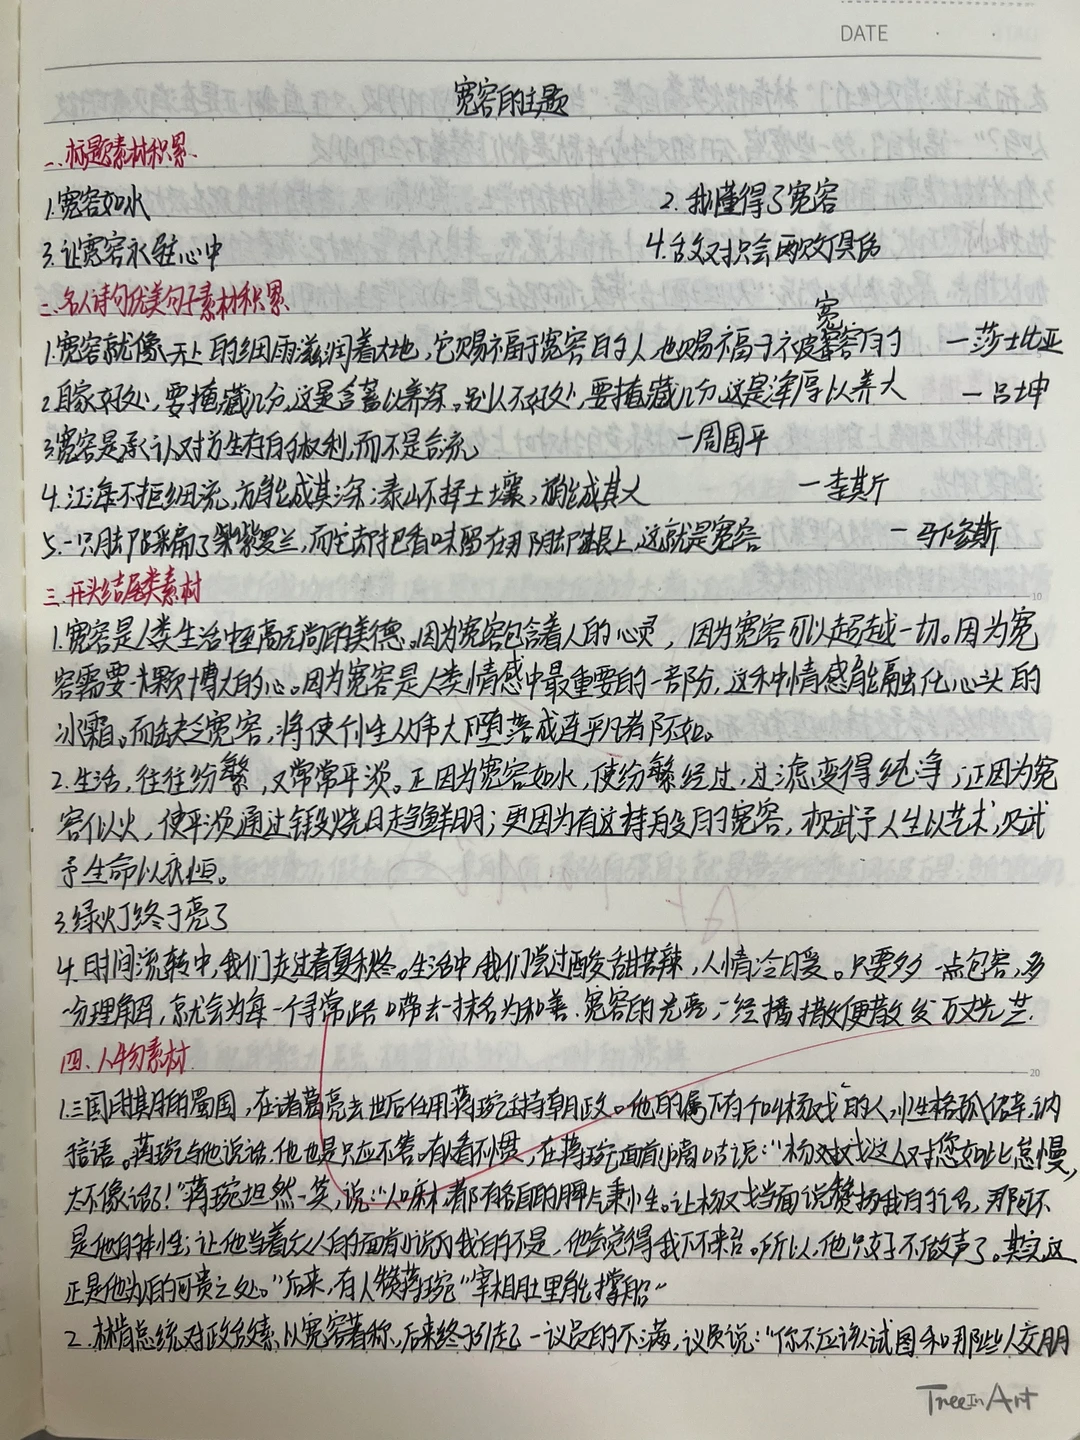 DATE
宽容的主题
一.标题素材积累
1.宽容如水 2.我懂得了宽容
3.让宽容永驻心中 4.敌对只会两败俱伤
二.名人诗句优美句子素材积累
宽
1.宽容就像天上的细雨滋润着大地,它赐福于宽容的人,也赐福于被容的 —莎士比亚
2.自家好处,要掩藏几分,这是含蓄以养深。别人不好处,要掩藏几分,这是浑厚以养大 —吕坤
3.宽容是承认对方生存的权利,而不是合流 —周国平
4.江海不拒细流,方能成其深;泰山不择土壤,方能成其大 —李斯
5.一只脚踩扁了紫罗兰,而它却把香味留在那脚跟上,这就是宽容 —马修斯
三.开头结尾类素材
1.宽容是人类生活中至高无尚的美德。因为宽容包含着人的心灵,因为宽容可以超越一切。因为宽
容需要一颗博大的心。因为宽容是人类情感中最重要的一部分,这种情感能融化心头的
冰霜。而缺乏宽容,将使个性从伟大堕落成连平凡者都不如。
2.生活,往往纷繁,又常常平淡。正因为宽容如水,使纷繁经过,过滤变得纯净;正因为宽
容似火,使平淡通过锻烧日趋鲜明;更因为有这特殊的宽容,赋予人生以艺术,赋
予生命以永恒。
3.绿灯终于亮了
4.时间流转中,我们走过春夏秋冬。生活中,我们尝过酸甜苦辣,人情冷暖。只要多一点包容,多
一分理解,就会为每一个寻常日带去一抹名为和善.宽容的光亮,一经播撒便散发万丈光芒.
四.人物素材
1.三国时期的蜀国,在诸葛亮去世后任用蒋琬主持朝政。他的属下有个叫杨戏的人,性格孤僻,讷
言语。蒋琬与他说话,他也是只应不答。有人看不惯,在蒋琬面前嘀咕说:“杨戏这人对您如此怠慢,
太不像话了!”蒋琬坦然一笑,说:“人嘛,都有各自的脾气秉性。让杨戏当面说赞扬我的话,那可不
是他的本性;让他当着众人的面说我的不是,他会觉得我下不来台。所以,他只好不做声了。其实,这
正是他为人的可贵之处。”后来,有人赞蒋琬“宰相肚里能撑船”
2.林肯总统对政敌素以宽容著称,后来终于引起一议员的不满,议员说:“你不应该试图和那些人交朋
TreeInArt